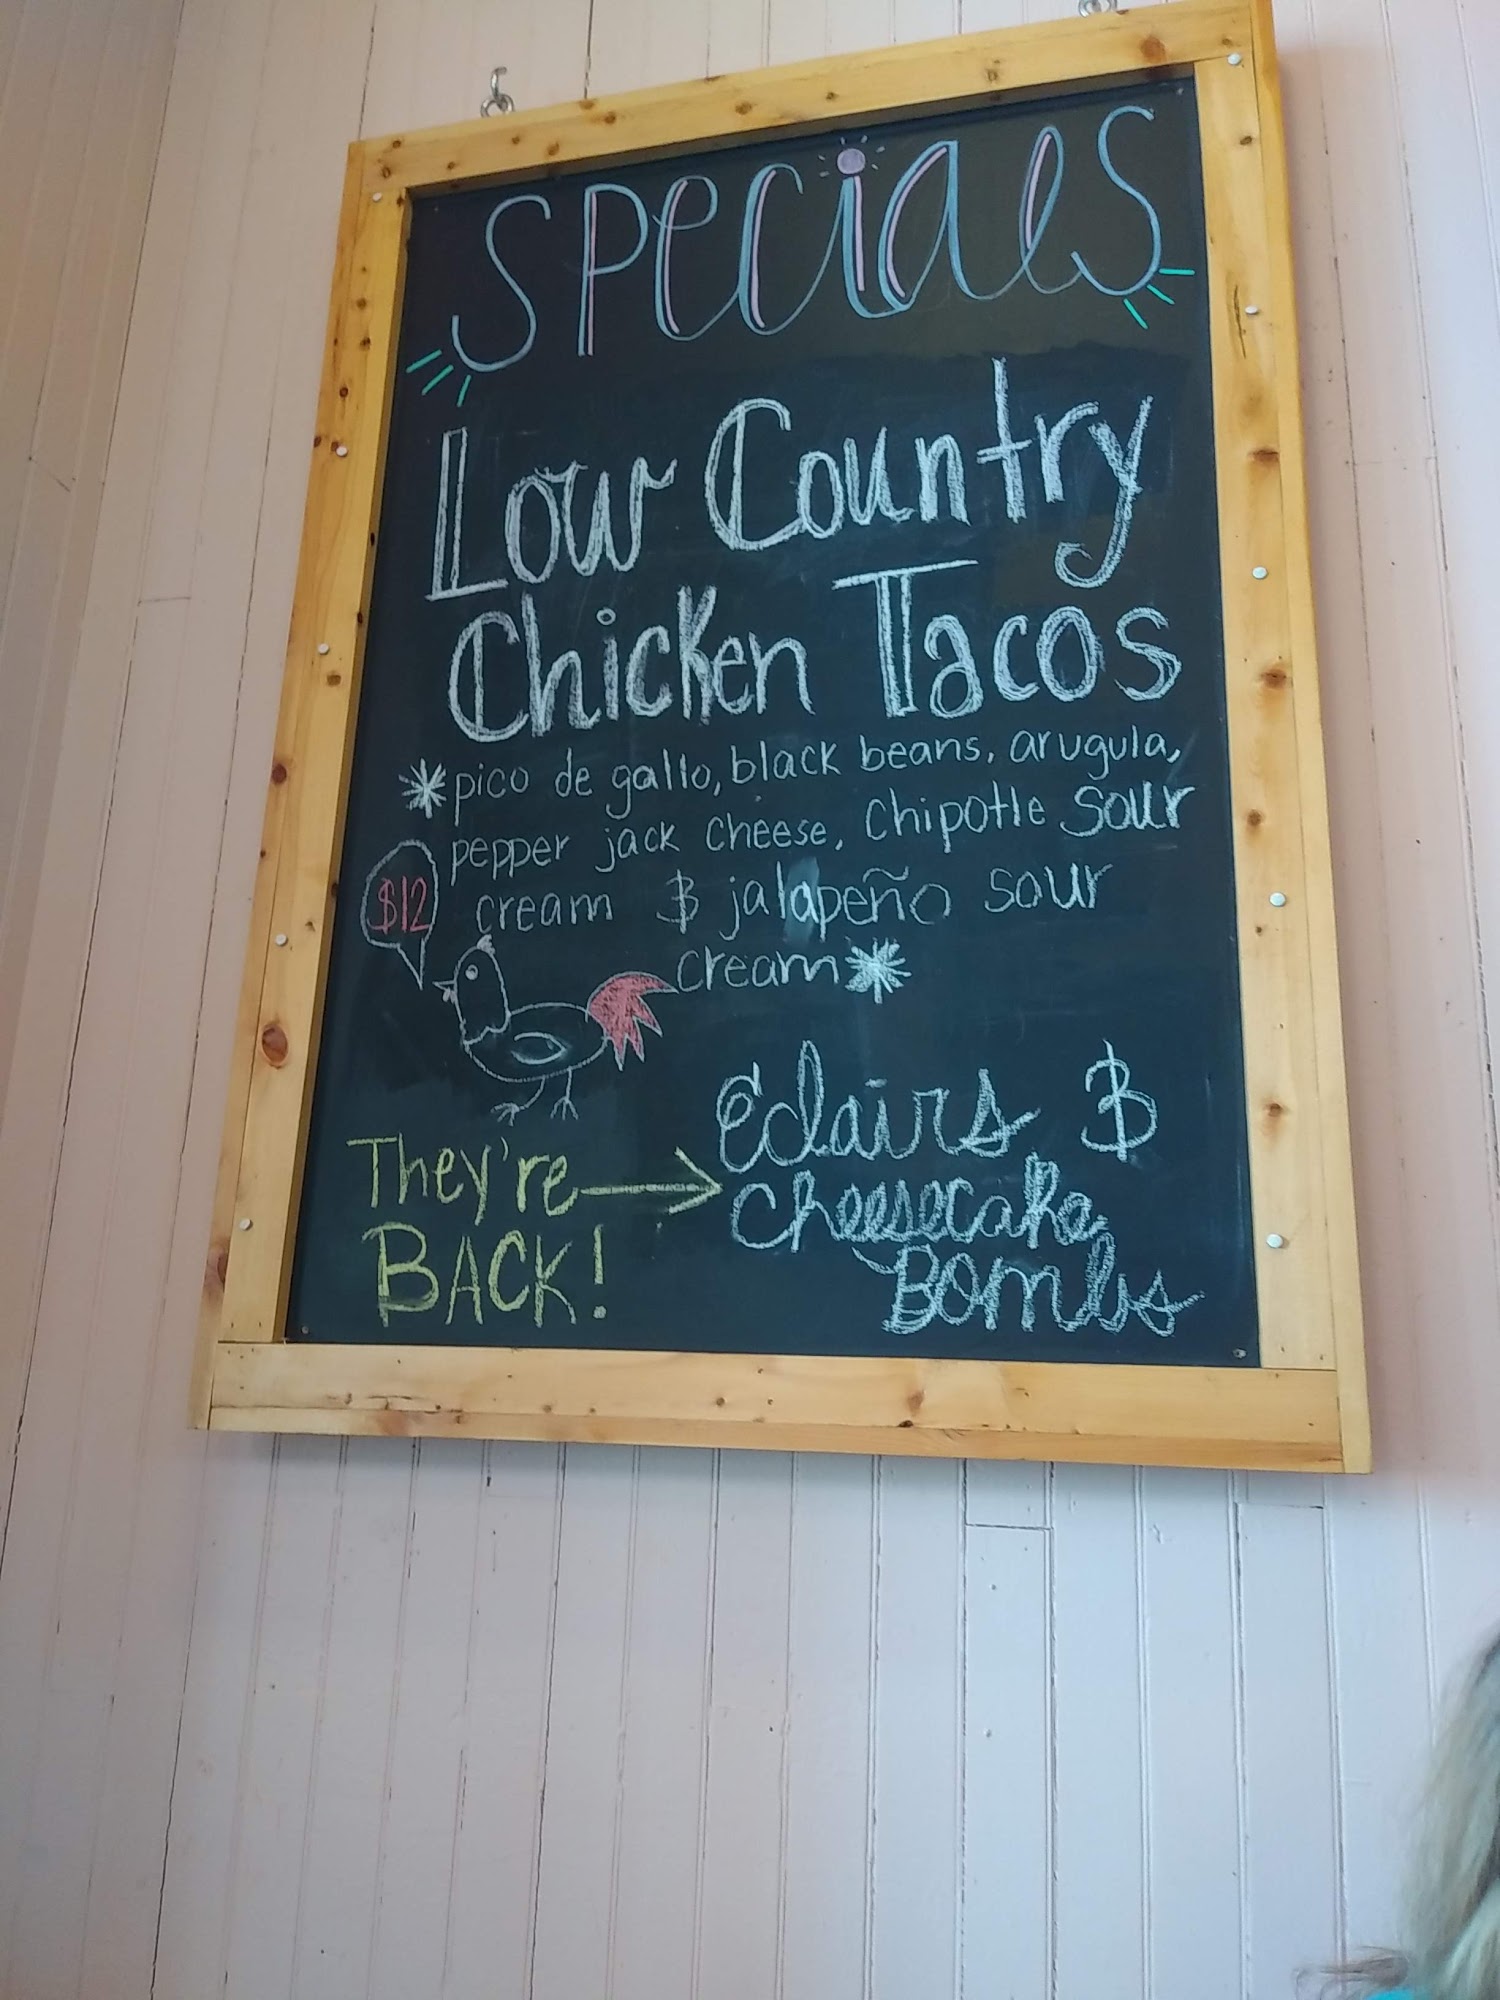 Specials
Low Country
Chicken Tacos
*pico de gallo, black beans, arugula,
pepper jack cheese, chipotle sour
$12
cream & jalapeño sour
cream*
They're
BACK!
Eclairs &
Cheesecake
Bombs